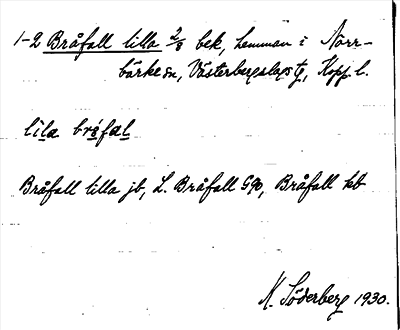 1-2 Bråfall lilla 2/8 bek, hemman i Norr-
bärke sn, Västerbergslags tg, Kopp. l.
lila bråfal
Bråfall lilla jb, L. Bråfall G90, Bråfall kb
N. Söderberg 1930.